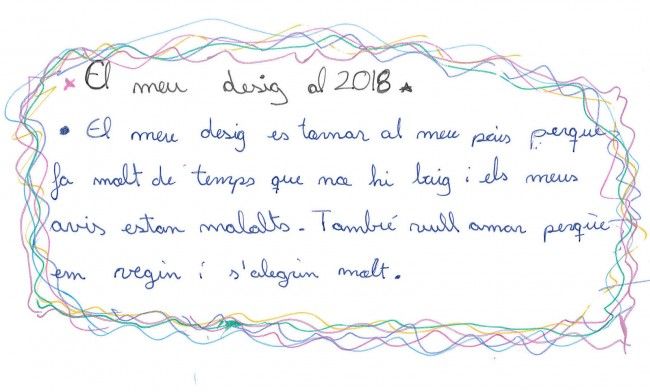 El meu desig al 2018
• El meu desig es tornar al meu país perquè
fa molt de temps que no hi vaig i els meus
avis estan malalts. També vull anar perquè
em vegin i s'alegrin molt.